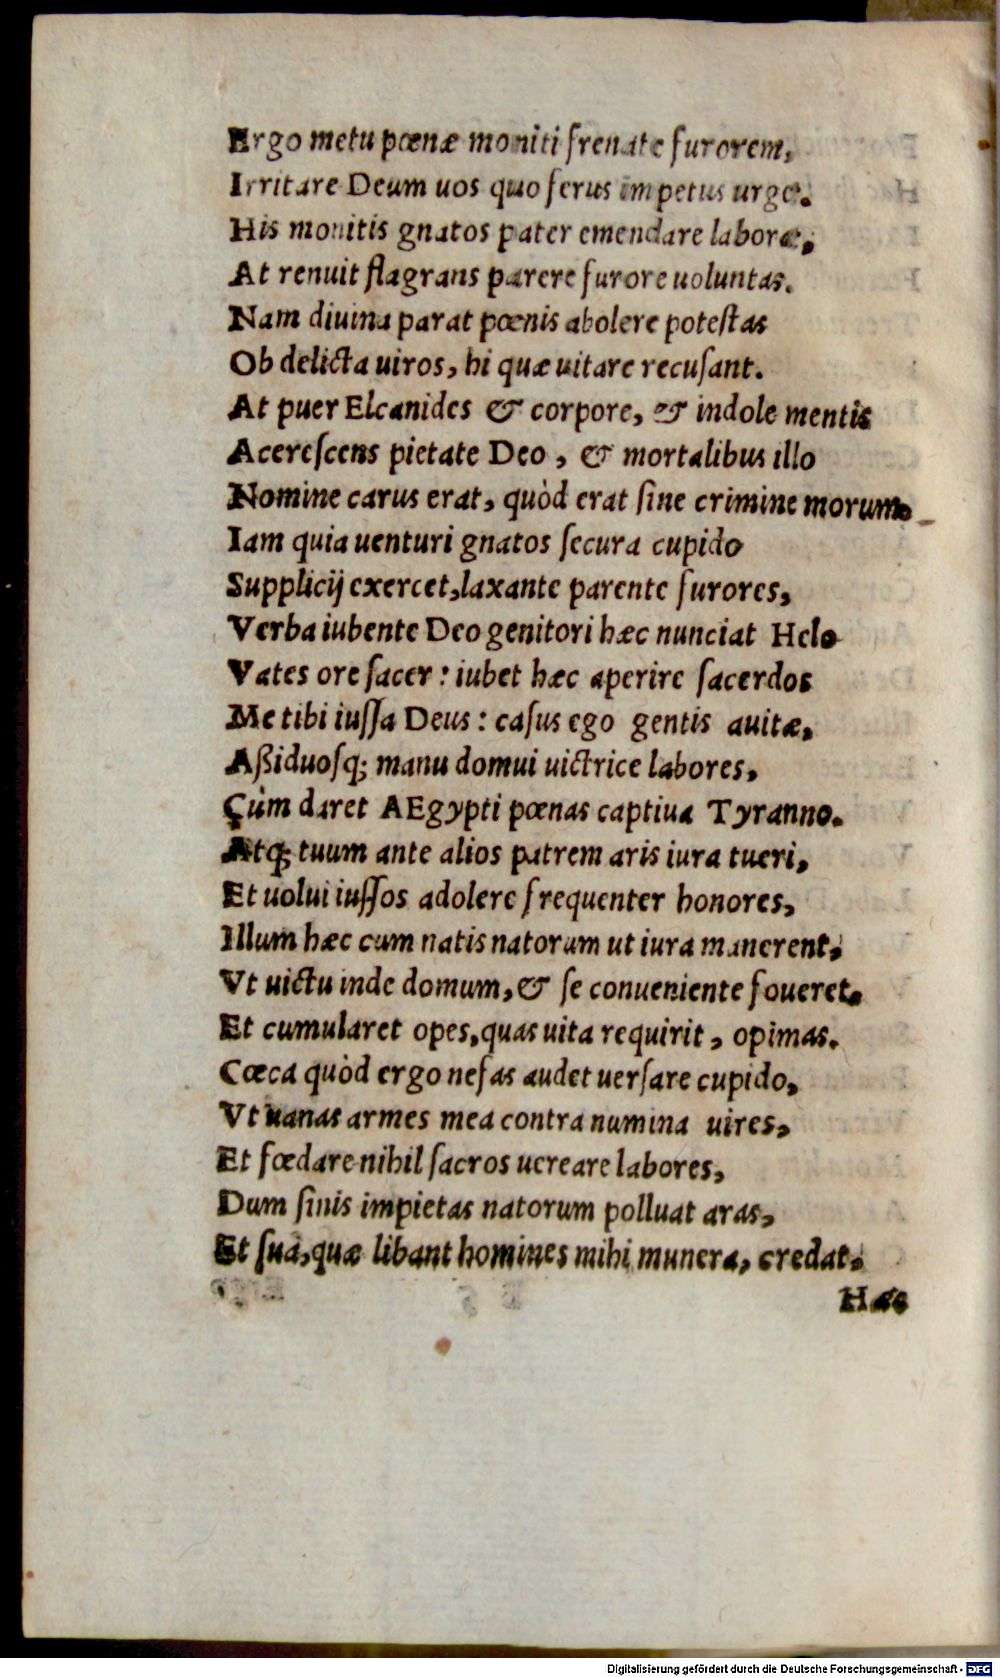 Ergo metu pœnæ moniti frenate furorem,
Irritare Deum uos quo ferus impetus urget.
His monitis gnatos pater emendare laborat,
At renuit flagrans parere furore uoluntas.
Nam diuina parat pœnis abolere potestas
Ob delicta uiros, hi quæ uitare recusant.
At puer Elcanides & corpore, & indole mentis
Acerescens pietate Deo, & mortalibus illo
Nomine carus erat, quòd erat sine crimine morum.
Iam quia uenturi gnatos secura cupido
Supplicij exercet, laxante parente furores,
Verba iubente Deo genitori hæc nunciat Helo
Vates ore sacer: iubet hæc aperire sacerdos
Me tibi iussa Deus: casus ego gentis auitæ,
Aßiduosq; manu domui uictrice labores,
Cùm daret AEgypti pœnas captiua Tyranno.
Atq; tuum ante alios patrem aris iura tueri,
Et uolui iussos adolere frequenter honores,
Illum hæc cum natis natorum ut iura manerent,
Vt uictu inde domum, & se conueniente foueret.
Et cumularet opes, quas uita requirit, opimas.
Cœca quòd ergo nefas audet uersare cupido,
Vt uanas armes mea contra numina uires,
Et fœdare nihil sacros uereare labores,
Dum sinis impietas natorum polluat aras,
Et sua, quæ libant homines mihi munera, credat.
Hæc
Digitalisierung gefördert durch die Deutsche Forschungsgemeinschaft - DFG